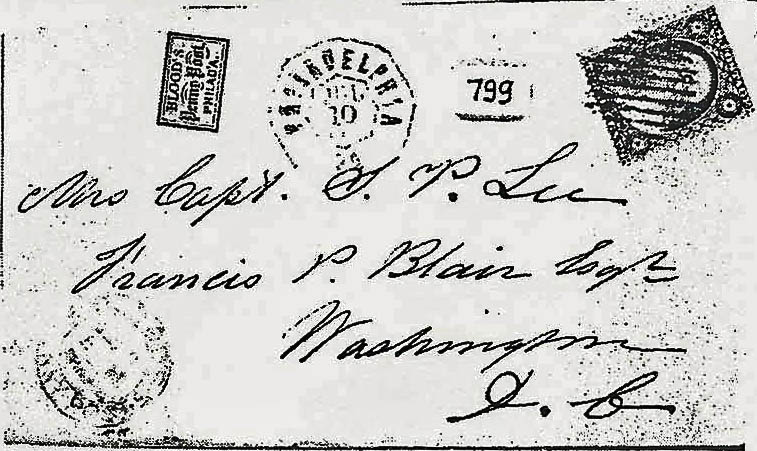 BLOOD'S
Penny Post
PHILAD'A.
PHILADELPHIA
10
799
Mrs Capt. S. P. Lee
Francis P. Blair Esqr
Washington
D. C